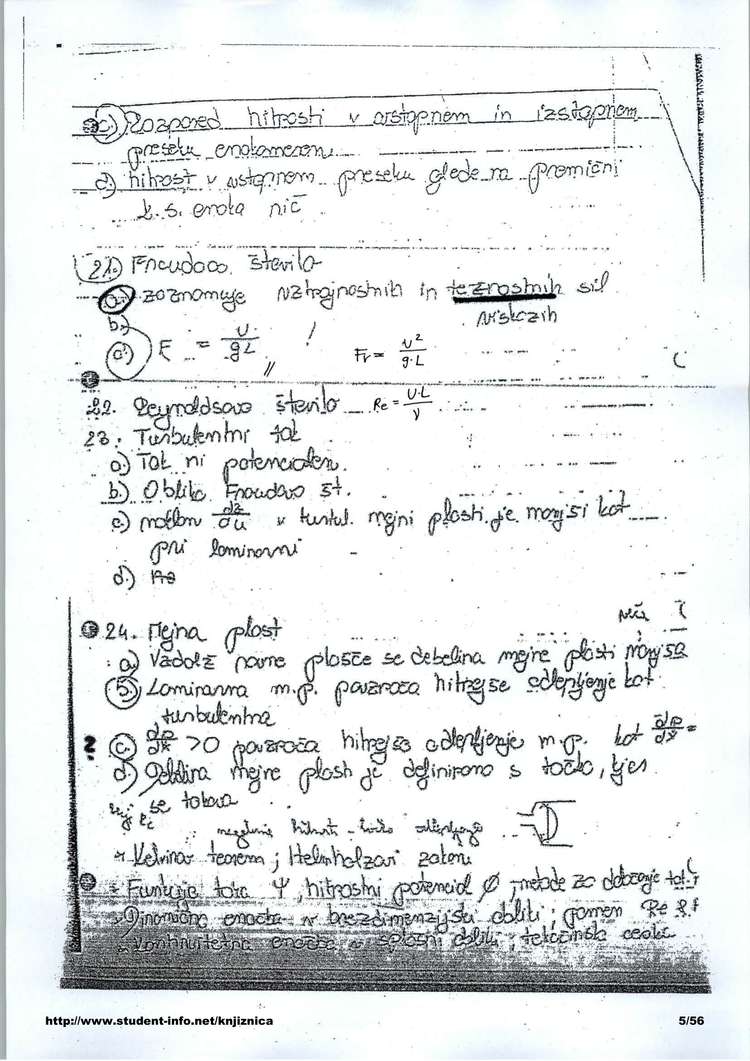 c.) Razpored hitrosti v vstopnem in izstopnem
preseku enakomeren.
d.) hitrost v vstopnem preseku glede na premični
k.s. enaka nič.
21.) Froudovo število
a.) zaznamuje vztrajnostnih in težnostnih sil
viskoznih
b.)
c.) F = v / gL !
Fr = v² / g·L
22. Reynoldsovo število Re = v·L / ν
23. Turbulentni tok
a.) Tok ni potencialen.
b.) Oblika Froudovo št.
c.) naklon dz/du v turbul. mejni plasti je manjši kot
pri laminarni
d.)
24. Mejna plast
a.) Vzdolž ravne plošče se debelina mejne plasti manjša
b.) Laminarna m.p. povzroča hitrejše odlepljenje kot
turbulentna
2 c.) dp/dx > 0 povzroča hitrejšo odlepljenje m.p. kot dp/dx =
d.) Debelina mejne plasti je definirana s točko, kjer
se
* Kelvinov teorem; Helmholzovi zakoni
* Funkcija toka Ψ, hitrostni potencial Ø; metode za določanje
Dinamična enačba v brezdimenzijski obliki; pomen Re
Kontinuitetna enačba v splošni obliki;
http://www.student-info.net/knjiznica
5/56